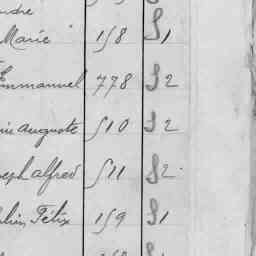 Marie " 158 S1
Emmanuel 778 S2
auguste 510 S2
alfred 511 S2
Félix 159 S1